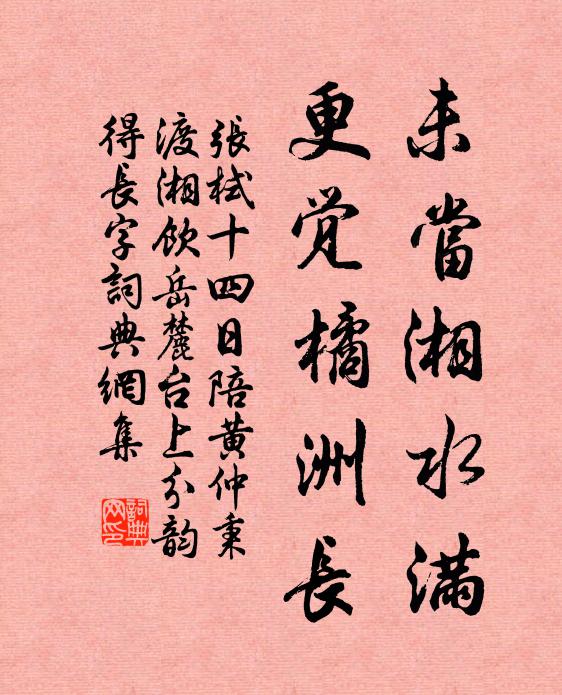 未當湘水滿
更覚橘洲長
張栻十四日陪黄仲秉
渡湘飲岳麓台上分韵
得長字詞典網集
詞典网印